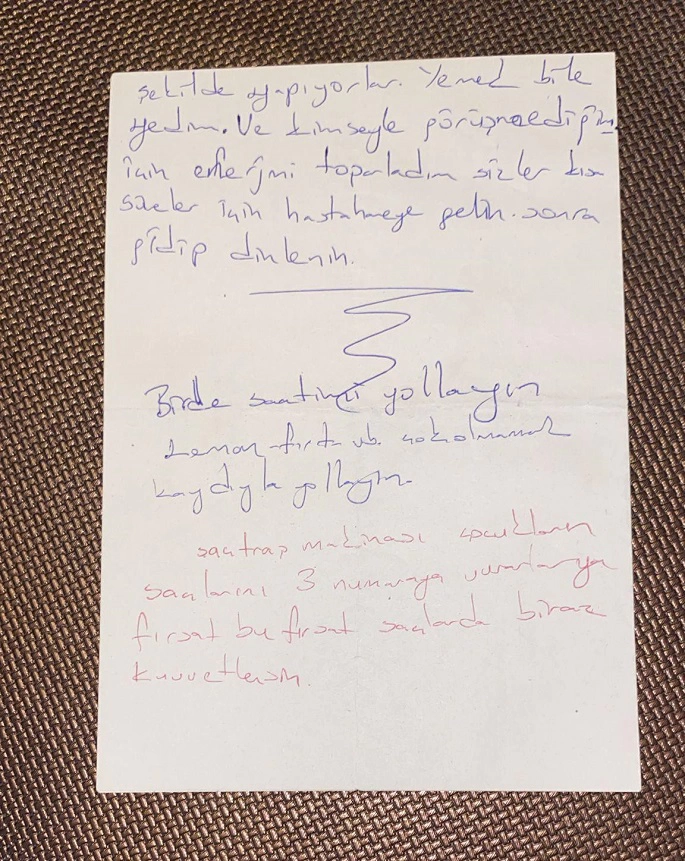 şekilde yapıyorlar. Yemek bile
yedim. Ve kimseyle görüşmediğim
için enerjimi toparladım sizler kısa
süreler için hastahaneye gelin. sonra
gidip dinlenin.
Birde saatimi yollayın
Roman-fıkra vb. çok olmamak
kaydıyla yollayın.
saç traş makinası çocukların
saçlarını 3 numaraya
fırsat bu fırsat saçlarda biraz
kuvvetlensin.